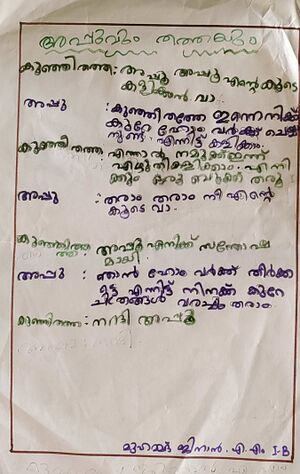 അപ്പുവും തത്തയും
കുഞ്ഞിതത്ത : അപ്പൂ അപ്പൂ എന്റെ കൂടെ
കളിക്കാൻ വാ.
അപ്പു : കുഞ്ഞിതത്തേ ഇന്നെനിക്ക്
കുറേ ഹോം വർക്ക് ചെയ്യ
നുണ്ട്. എന്നിട്ട് കളിക്കാം.
കുഞ്ഞി തത്ത : എന്നാൽ നമുക്ക് ഇന്ന്
എഴുതികളിക്കാം. എനി
ക്കും ഒരു ബുക്ക് തരൂ
അപ്പു : തരാം തരാം നീ എന്റെ
കൂടെ വാ.
കുഞ്ഞിതത്ത : അപ്പൂ എനിക്ക് സന്തോഷ
മായി.
അപ്പു : ഞാൻ ഹോം വർക്ക് തീർക്ക
ട്ടെ എന്നിട്ട് നിനക്ക് കുറേ
ചിത്രങ്ങൾ വരച്ചും തരാം.
കുഞ്ഞിതത്ത : നന്ദി അപ്പൂ
മുഹമ്മദ് ജിനാൻ. എ. എം I-B